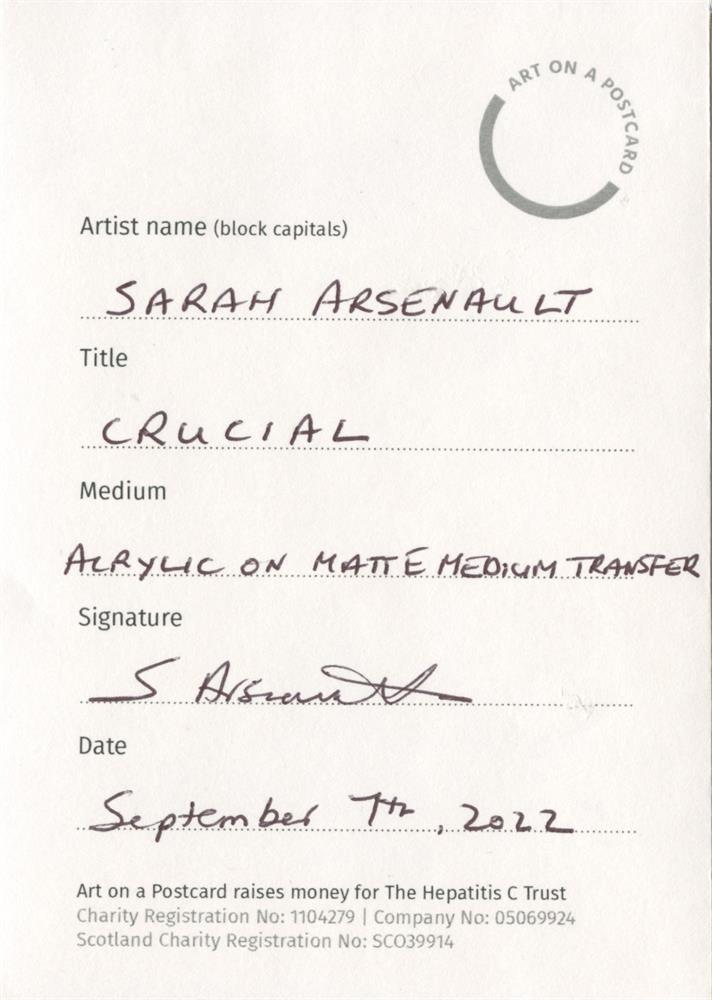 ART ON A POSTCARD
Artist name (block capitals)
SARAH ARSENAULT
Title
CRUCIAL
Medium
ACRYLIC ON MATTE MEDIUM TRANSFER
Signature
S Arsenault
Date
September 7th, 2022
Art on a Postcard raises money for The Hepatitis C Trust
Charity Registration No: 1104279 | Company No: 05069924
Scotland Charity Registration No: SCO39914